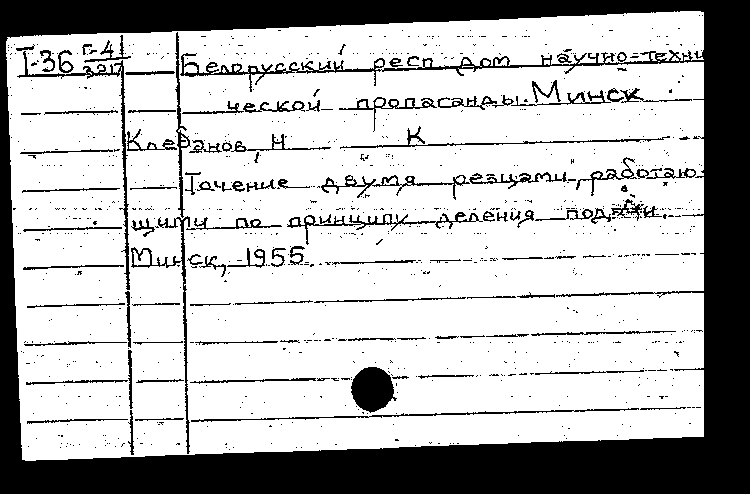 Т-36 Г-4 Белорусский респ дом научно-техни
ческой пропаганды. Минск
Клебанов, Н К
Точение двумя резцами, работаю-
щими по принципу деления подачи.
Минск, 1955.